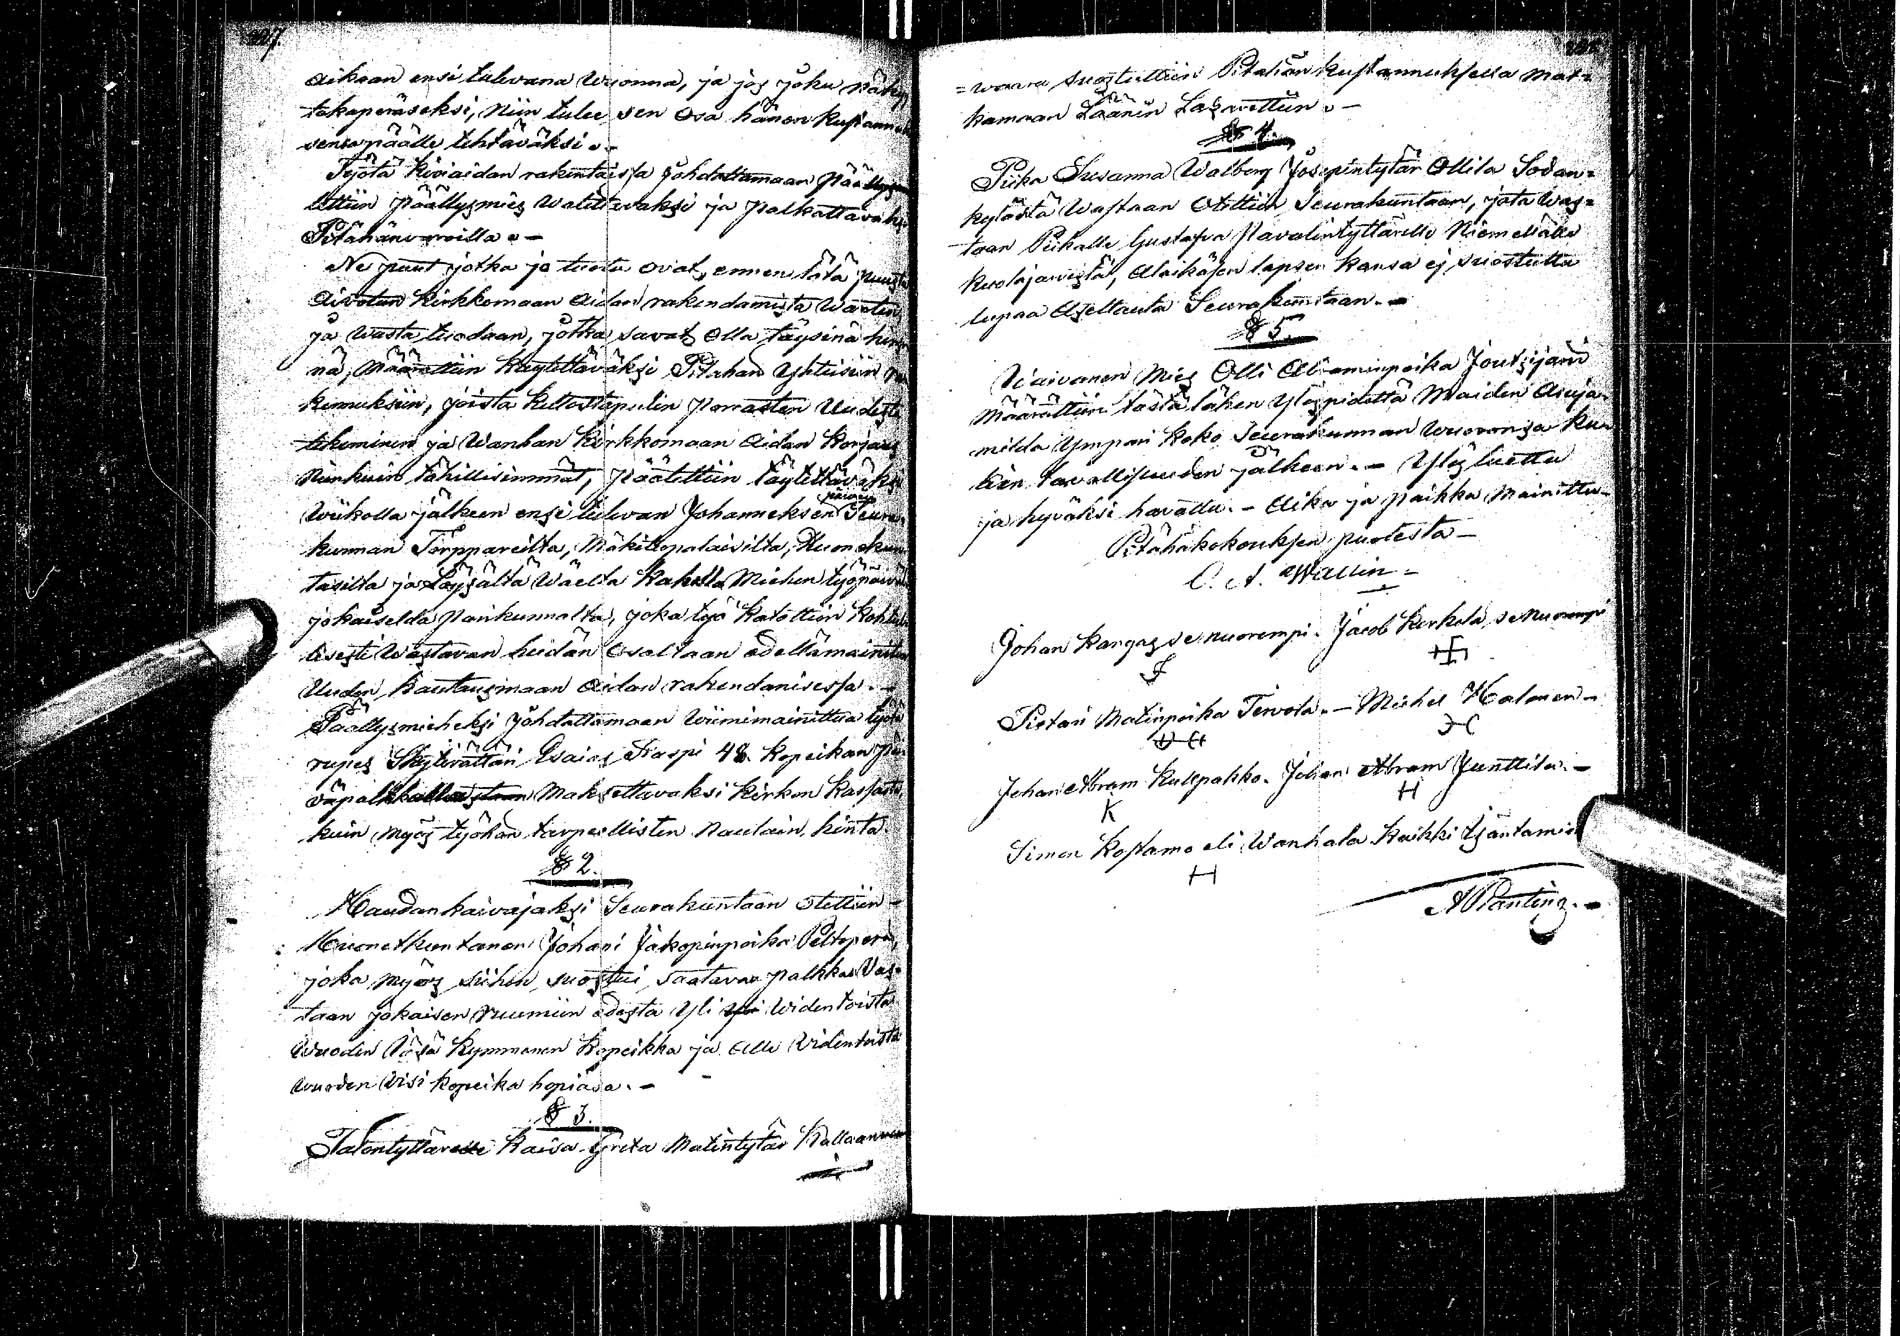 227.
aikaan ensi tulevana Wuonna, ja jos joku näky
takaperäseksi, niin tulee sen osa hänen kustannuk
sensa päälle tehtäväksi. -
Työtä kiviaidan rakentaissa johdattamaan päällys
tettiin päällysmies Walittavaksi ja palkattavaksi
Pitähänvaroilla. -
Ne puut jotka jo tuotu ovat, ennen tätä
aivotun kirkkomaan aidan rakendamista Warten
ja Wasta tuodaan, jotka savat olla täysinä hin
nä, määrättiin käytettäväksi Pitähän yhteisiin
kennuksiin, joista kellottapulin porrasten Uudesti
tekeminen ja Wanhan kirkkomaan aidan korjaus
niinkuin tähillisimmät, päätettiin täytettäväksi
Wiikolla jälkeen ensi tulevan Johanneksen päivän Seura-
kunnan Torppareilta, Mäkitupalaisilta, Huonekun
tasilta ja Löysältä Wäeltä kahdella Miehen työpäivä
jokaiselda Pariskunnalta, joka työ katottiin kohtuul
lisesti Wastavan heidän osaltaan edellämainitun
Uuden hautausmaan aidan rakendamisessa. -
Päällysmieheksi johdattamaan Wiimimainittua työtä
rupes Skytivääri Esaias Kaspi 48. kopeikan päi-
väpalkkallaastaan Maksettavaksi kirkon kassasta,
kuin myös työhön tarpeellisten naulain hinta.
§ 2.
Haudankaivajaksi Seurakuntaan otettiin -
Huonetkuntanen Johani Jakopinpoika Peltoperä,
joka myös siihen suostui, saatavan palkkaa Vas-
taan jokaisen ruumiin edestä yli yli Widentoista
Wuoden Vasa kymmenen kopeikka ja alle Widentoista
wuoden Visi kopeika hopiasa. -
§ 3.
Talontyttärelle Kaisa Greta Matintytär Kallaanwaa
= waara suostuttiin Pitähän kustannuksella mat-
kamaan Läänin Lazarettiin. -
§ 4.
Piika Susanna Walborg Josepintytär Ollila Sodan-
kylästä Wastaan otettiin Seurakuntaan, jota Was-
toin Piikalle Gustafva Paavalintyttärelle Niemelälle
kuolajarvestä, alaikäsen lapsen kansa ej suostuttu
lupaa asettauta Seurakuntaan. -
§ 5.
Waivanen Mies Olli Abraminpoika Joutsijarvi
Määrättiin tästä läken ylöspidettä Maiden asuja-
milda ympäri koko Seurakunnan Wuoronsa ku-
tien tavallisuuden jälkeen. - Ylösluettu
ja hyväksi havattu. - Aika ja paikka Mainittu-
Pitähäkokouksen puolesta -
C. A. Wallin -
Johan Kangas se nuorempi. Jacob Kerkelä, se nuorempi
Pietari Matinpoika Tervola. - Michel Halonen -
Johan Abram Kullpakko. Johan Abram Junttila. -
K H
Simon Kostamo eli Wanhala. Kaikki Isäntämie
H
A Planting. -